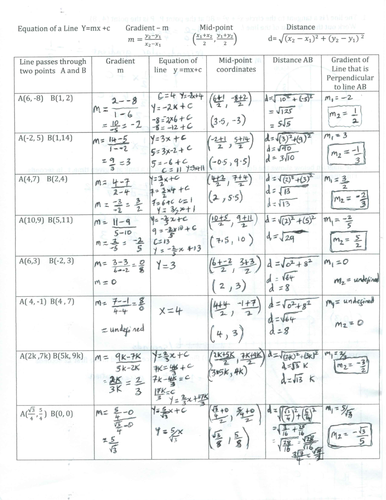 Equation of a Line Y=mx+c
Gradient – m
m = (y₂−y₁)/(x₂−x₁)
Mid-point
((x₁+x₂)/2, (y₁+y₂)/2)
Distance
d=√((x₂ − x₁)² + (y₂ − y₁)²
Line passes through two points A and B
Gradient m
Equation of line y =mx+c
Mid-point coordinates
Distance AB
Gradient of Line that is Perpendicular to line AB
A(6, -8) B(1, 2)
m = (2--8)/(1-6)
= 10/-5 = -2
Y = -2x + c
-8 = -2x6 + c
-8 = -12 + c
c = 4 Y = -2x+4
((6+1)/2, (-8+2)/2)
(3.5, -3)
= √125
= 5√5
m₁ = -2
m₂ = 1/2
A(-2, 5) B(1,14)
m = (14-5)/(1--2)
= 9/3 = 3
Y = 3x + c
5 = 3x-2 + c
5 = -6 + c
c = 11 Y = 3x+11
((-2+1)/2, (5+14)/2)
(-0.5, 9.5)
d = √((3)² + (9)²)
= √90
d = 3√10
m₁ = 3
m₂ = -1/3
A(4,7) B(2,4)
m = (4-7)/(2-4)
m = -3/-2 = 3/2
Y = 3/2x + c
7 = 3/2x4 + c
7 = 6+c c = 1
((4+2)/2, (7+4)/2)
(3, 5.5)
= √13
d = √13
m₁ = 3/2
m₂ = -2/3
A(10,9) B(5,11)
m = (11-9)/(5-10)
m = 2/-5 = -2/5
Y = -2/5x + c
9 = -2/5x10 + c
c = 13
Y = -2/5x +13
((10+5)/2, (9+11)/2)
(7.5, 10)
d = √((2)² + (5)²)
d = √29
m₁ = -2/5
m₂ = 5/2
A(6,3) B(-2, 3)
m = 0
Y = 3
((6+-2)/2, (3+3)/2)
(2, 3)
d = √(0² + 8²)
d = √64
d = 8
m₁ = 0
m₂ = undefined
A( 4,-1) B(4 , 7)
m = (7--1)/(4-4) = 8/0
= undefined
X = 4
((4+4)/2, (-1+7)/2)
(4, 3)
d = √(0² + 8²)
d = √64
d = 8
m₁ = undefined
m₂ = 0
A(2k ,7k) B(5k, 9k)
m = (9K-7K)/(5K-2K)
= 2K/3K = 2/3
Y = 2/3x + c
((2K+5K)/2, (7K+9K)/2)
(3.5K, 8K)
d = √13 K
A(√3/4, 5/4) B(0, 0)
= 5/√3
Y = 5/√3 x
(√3/8, 5/8)
m₁ = 5/√3
m₂ = -√3/5